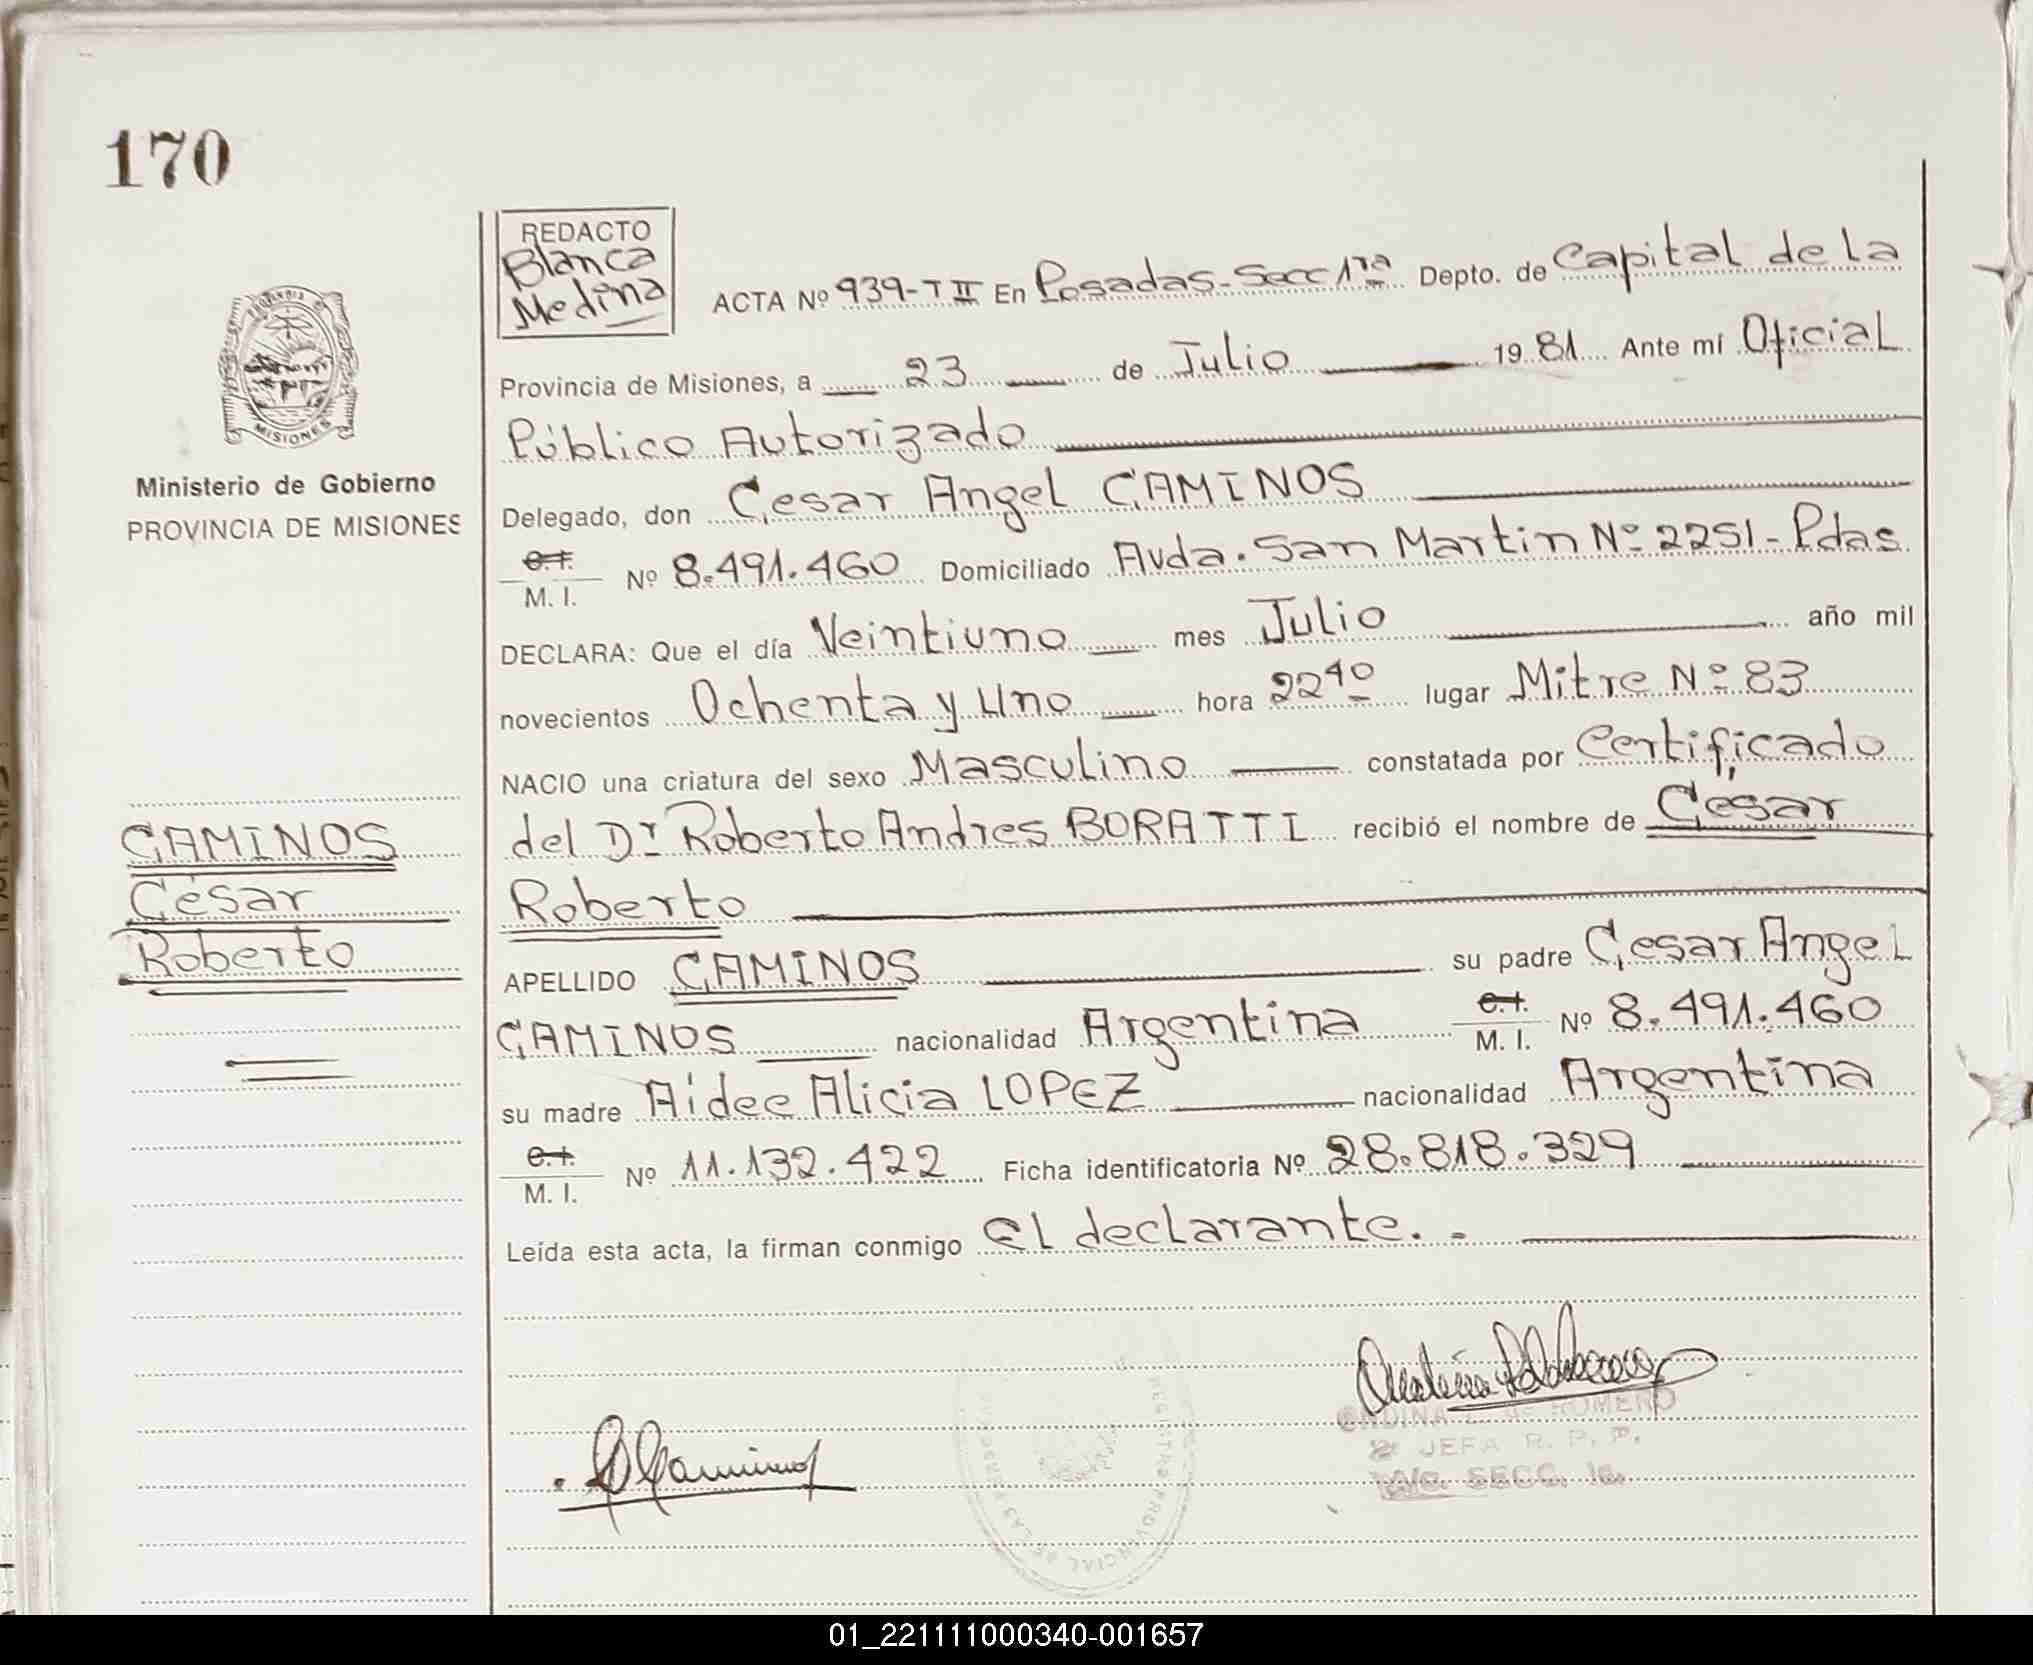 170
REDACTO
Blanca
Medina
ACTA Nº 939-T II En Posadas-Secc 1ra Depto. de Capital de la
Provincia de Misiones, a 23 de Julio 1981 Ante mí Oficial
Público Autorizado
Delegado, don Cesar Angel CAMINOS
C.I.
M. I. Nº 8.491.460 Domiciliado Avda. San Martin Nº 2251-Pdas
DECLARA: Que el día Veintiuno mes Julio año mil
novecientos Ochenta y Uno hora 22 40 lugar Mitre Nº 83
NACIO una criatura del sexo Masculino constatada por Certificado
del Dr Roberto Andres BORATTI recibió el nombre de Cesar
Roberto
APELLIDO CAMINOS su padre Cesar Angel
CAMINOS nacionalidad Argentina C.I. M. I. Nº 8.491.460
su madre Aidee Alicia LOPEZ nacionalidad Argentina
C.I.
M. I. Nº 11.132.422 Ficha identificatoria Nº 28.818.329
Leída esta acta, la firman conmigo El declarante. -
MISIONES
Ministerio de Gobierno
PROVINCIA DE MISIONES
CAMINOS
César
Roberto
ROMERO
JEFA R. P. P.
A/C. SECC. 1a.
REGISTRO PROVINCIAL DE LAS PERSONAS
01_221111000340-001657